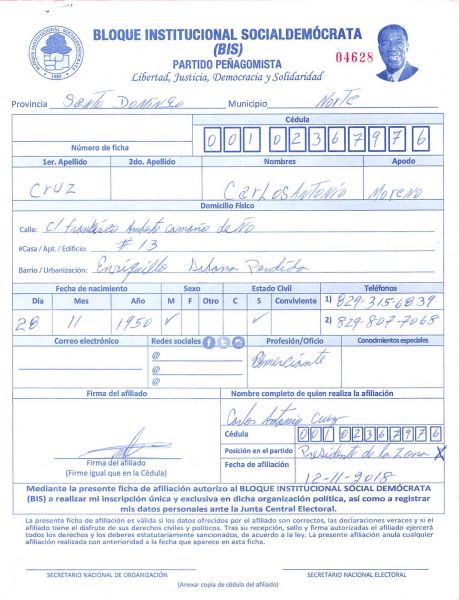 BLOQUE INSTITUCIONAL SOCIALDEMÓCRATA
(BIS)
PARTIDO PEÑAGOMISTA
Libertad, Justicia, Democracia y Solidaridad
04628
Provincia Santo Domingo Municipio Norte
Cédula
Número de ficha 0 0 1 0 2 3 6 7 9 7 6
1er. Apellido 2do. Apellido Nombres Apodo
Cruz Carlos Antonio Moreno
Domicilio Físico
Calle: C/ Francisco Alberto Camaño de Ño
#Casa / Apt. / Edificio: # 13
Barrio / Urbanización: Enriquillo Sabana Perdida
Fecha de nacimiento Sexo Estado Civil Teléfonos
Día Mes Año M F Otro C S Conviviente 1) 829-315-6839
28 11 1950 ✓ ✓ 2) 829-807-7068
Correo electrónico Redes sociales Profesión/Oficio Conocimientos especiales
@ Comerciante
@
@
Firma del afiliado Nombre completo de quien realiza la afiliación
Carlos Antonio Cruz
Cédula 0 0 1 0 2 3 6 7 9 7 6
Posición en el partido Presidente de la Zona X
Firma del afiliado
(Firme igual que en la Cédula)
Fecha de afiliación 12-11-2018
Mediante la presente ficha de afiliación autorizo al BLOQUE INSTITUCIONAL SOCIAL DEMÓCRATA
(BIS) a realizar mi inscripción única y exclusiva en dicha organización política, así como a registrar
mis datos personales ante la Junta Central Electoral.
La presente ficha de afiliación es válida si los datos ofrecidos por el afiliado son correctos, las declaraciones veraces y si el
afiliado tiene el disfrute de sus derechos civiles y políticos. Tras su recepción, sello y firma autorizadas el afiliado ejercerá
todos los derechos y los deberes estatutariamente sancionados, de acuerdo a la ley. La presente afiliación anula cualquier
afiliación realizada con anterioridad a la fecha que aparece en esta ficha.
SECRETARIO NACIONAL DE ORGANIZACIÓN SECRETARIO NACIONAL ELECTORAL
(Anexar copia de cédula del afiliado)